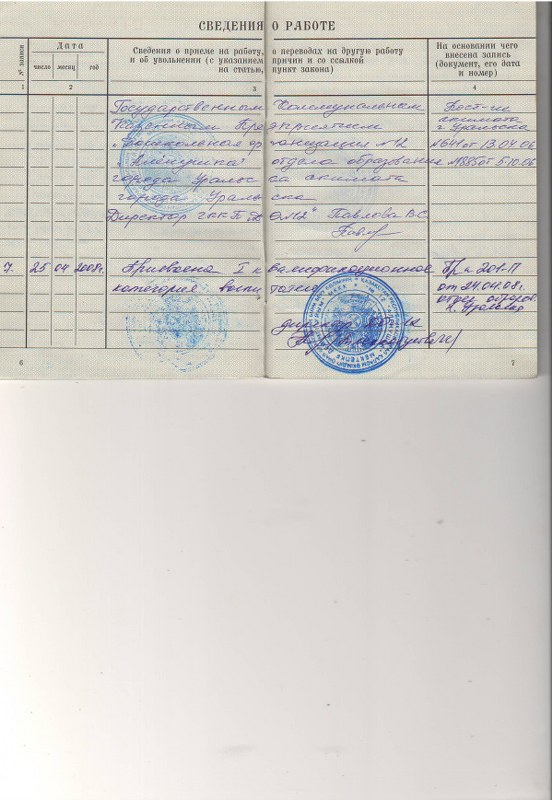 СВЕДЕНИЯ О РАБОТЕ
№ записи
Дата
Сведения о приеме на работу, о переводах на другую работу
и об увольнении (с указанием причин и со ссылкой
на статью, пункт закона)
На основании чего
внесена запись
(документ, его дата
и номер)
число месяц год
1 2 3 4
Государственным Коммунальным
Казенным Предприятием
"Дошкольная организация №12
Алёнушка" отдела образования
города Уральска акимата
города Уральска
Директор ГККП "ДО №12" Павлова В.С.
Пост-ие
акимата
г. Уральска
№641 от 13.04.06
№385 от 5.10.06
7. 25 04 2008г. Присвоена I квалификационное
категория воспитателя
директор
Пр № 201-П
от 24.04.08г.
г. Уральска
6 7